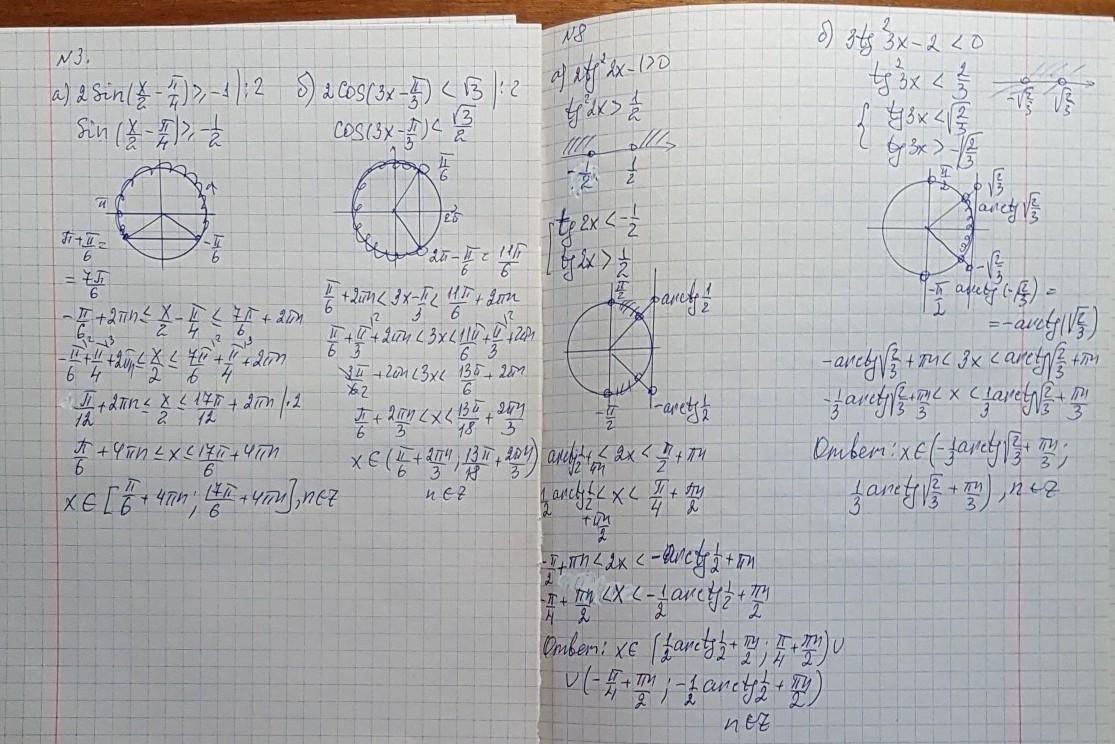 N3.
а) 2Sin(x/2 - π/4) ≥ -1 |:2
Sin(x/2 - π/4) ≥ -1/2
π
π + π/6 =
= 7π/6
-π/6
-π/6 + 2πn ≤ x/2 - π/4 ≤ 7π/6 + 2πn
-π/6 + π/4 + 2πn ≤ x/2 ≤ 7π/6 + π/4 + 2πn
π/12 + 2πn ≤ x/2 ≤ 17π/12 + 2πn |·2
π/6 + 4πn < x < 17π/6 + 4πn
x ∈ [π/6 + 4πn; 17π/6 + 4πn], n∈Z
б) 2cos(3x - π/3) < √3 |:2
cos(3x - π/3) < √3/2
π/6
2π
2π - π/6 = 11π/6
π/6 + 2πn < 3x - π/3 < 11π/6 + 2πn
π/6 + π/3 + 2πn < 3x < 11π/6 + π/3 + 2πn
3π/6 2 + 2πn < 3x < 13π/6 + 2πn
π/6 + 2πn/3 < x < 13π/18 + 2πn/3
x ∈ (π/6 + 2πn/3; 13π/18 + 2πn/3)
n ∈ Z
N8
а) 2tg²2x - 1 > 0
tg²2x > 1/2
-1/2 1/2
tg2x < -1/2
tg2x > 1/2
π/2
arctg 1/2
-π/2
-arctg 1/2
arctg 1/2 + πn < 2x < π/2 + πn
1/2 arctg 1/2 + πn/2 < x < π/4 + πn/2
-π/2 + πn < 2x < -arctg 1/2 + πn
-π/4 + πn/2 < x < -1/2 arctg 1/2 + πn/2
Ответ: x∈ (1/2 arctg 1/2 + πn/2; π/4 + πn/2) ∪
∪ (-π/4 + πn/2; -1/2 arctg 1/2 + πn/2)
n∈Z
б) 3tg²3x - 2 < 0
tg²3x < 2/3
-√2/3 √2/3
tg3x < √2/3
tg3x > -√2/3
π/2
√2/3
arctg √2/3
-√2/3
-π/2
arctg(-√2/3) =
= -arctg(√2/3)
-arctg√2/3 + πn < 3x < arctg√2/3 + πn
-1/3 arctg√2/3 + πn/3 < x < 1/3 arctg√2/3 + πn/3
Ответ: x∈ (-1/3 arctg√2/3 + πn/3;
1/3 arctg√2/3 + πn/3), n∈Z